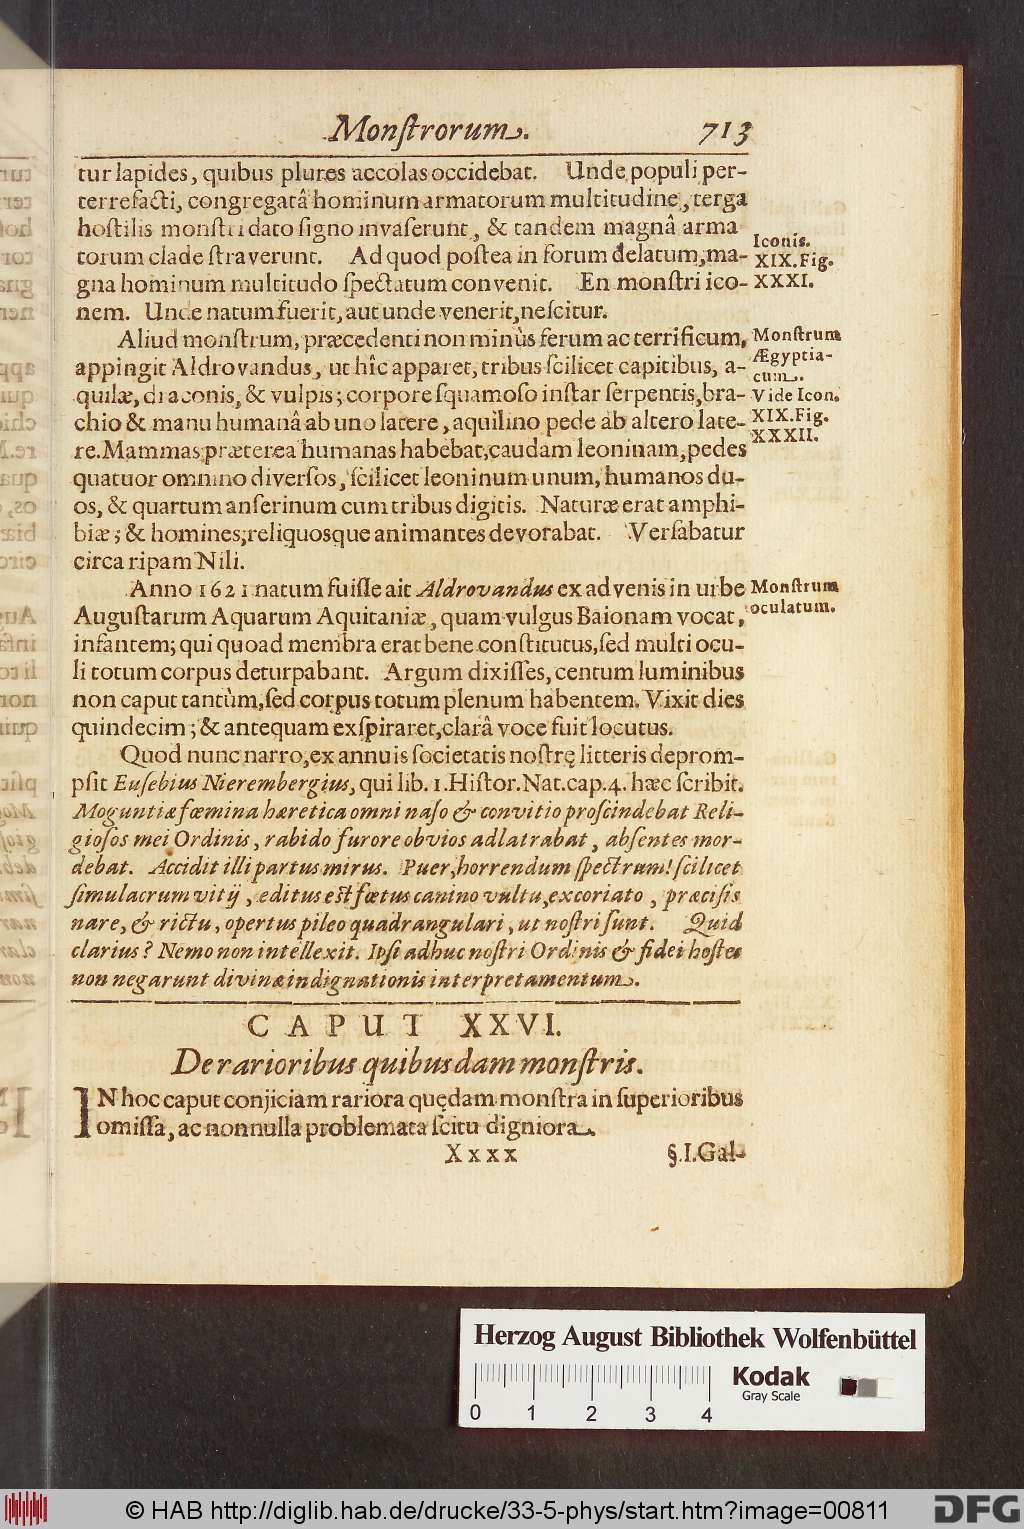 Monſtrorum. 713
tur lapides, quibus plures accolas occidebat. Unde populi per-
terrefacti, congregatâ hominum armatorum multitudine, terga
hoſtilis monſtri dato ſigno invaſerunt, & tandem magnâ arma
torum clade ſtraverunt. Ad quod poſtea in forum delatum, ma-
gna hominum multitudo ſpectatum convenit. En monſtri ico-
nem. Unde natum fuerit, aut unde venerit, neſcitur.
Iconis.
XIX. Fig.
XXXI.
Aliud monſtrum, præcedenti non minùs ferum ac terrificum,
appingit Aldrovandus, ut hîc apparet, tribus ſcilicet capitibus, a-
quilæ, draconis, & vulpis; corpore ſquamoſo inſtar ſerpentis, bra-
chio & manu humanâ ab uno latere, aquilino pede ab altero late-
re. Mammas præterea humanas habebat, caudam leoninam, pedes
quatuor omnino diverſos, ſcilicet leoninum unum, humanos du-
os, & quartum anſerinum cum tribus digitis. Naturæ erat amphi-
biæ; & homines, reliquosque animantes devorabat. Verſabatur
circa ripam Nili.
Monſtrum
Ægyptia-
cum.
Vide Icon.
XIX. Fig.
XXXII.
Anno 1621 natum fuiſſe ait Aldrovandus ex advenis in urbe
Auguſtarum Aquarum Aquitaniæ, quam vulgus Baionam vocat,
infantem; qui quoad membra erat bene conſtitutus, ſed multi ocu-
li totum corpus deturpabant. Argum dixiſſes, centum luminibus
non caput tantùm, ſed corpus totum plenum habentem. Vixit dies
quindecim; & antequam exſpiraret, clarâ voce fuit locutus.
Monſtrum
oculatum.
Quod nunc narro, ex annuis ſocietatis noſtrę litteris deprom-
pſit Euſebius Nierembergius, qui lib. 1. Hiſtor. Nat. cap. 4. hæc ſcribit.
Moguntiæ fœmina hæretica omni naſo & convitio proſcindebat Reli-
gioſos mei Ordinis, rabido furore obvios adlatrabat, abſentes mor-
debat. Accidit illi partus mirus. Puer, horrendum ſpectrum! ſcilicet
ſimulacrum vitij, editus eſt fœtus canino vultu, excoriato, præciſis
nare, & rictu, opertus pileo quadrangulari, ut noſtri ſunt. Quid
clarius? Nemo non intellexit. Ipſi adhuc noſtri Ordinis & fidei hoſtes
non negarunt divinæ indignationis interpretamentum.
CAPUT XXVI.
De rarioribus quibusdam monſtris.
IN hoc caput conjiciam rariora quędam monſtra in ſuperioribus
omiſſa, ac nonnulla problemata ſcitu digniora.
Xxxx §. I. Gal-
Herzog August Bibliothek Wolfenbüttel
Kodak
Gray Scale
0 1 2 3 4
© HAB http://diglib.hab.de/drucke/33-5-phys/start.htm?image=00811
DFG